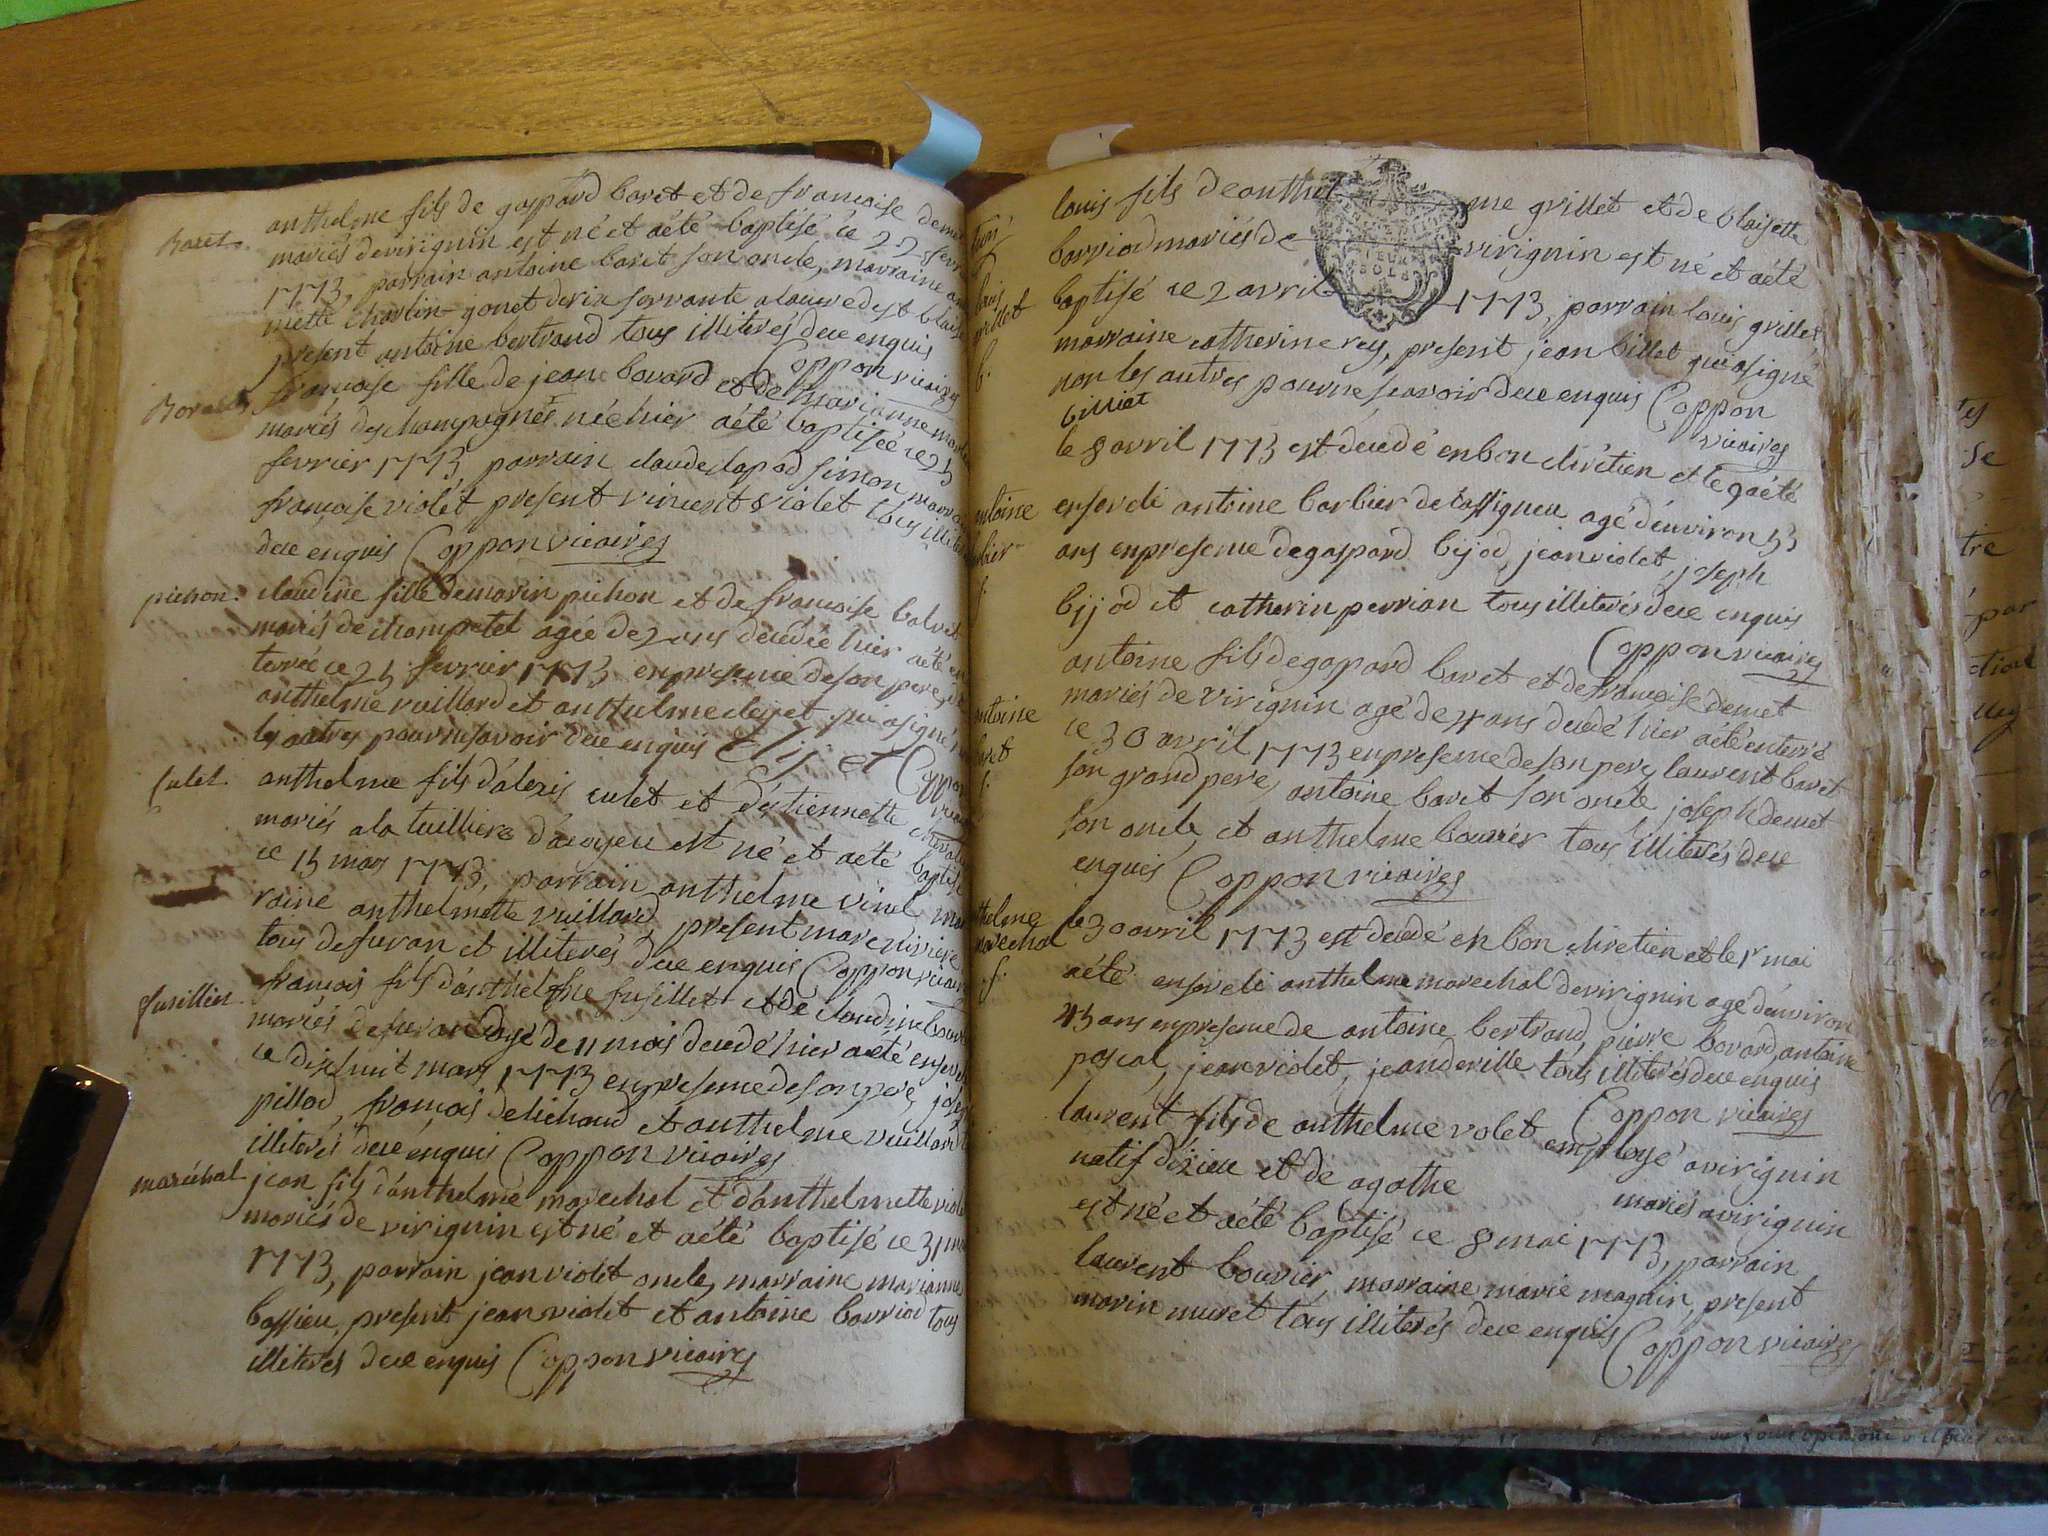 Baret
anthelme fils de gaspard baret et de francoise demet
mariés de virignin est né et aété baptisé ce 22 fevr
1773, parrain antoine baret son oncle, marraine
mette charlin gonet servante
present antoine bertrand tous illiterés de ce enquis
Coppon vicaires
francoise fille de jean bovard et de marianne
mariés des champagnes née hier aété baptisée ce 25
fevrier 1773 parrain claude simon marra
francoise violet present vincent violet tous illite
de ce enquis Coppon vicaires
pichon
claudine fille de marin pichon et de francoise
mariés de champtel agée de 2 ans decedée hier aété en
terrée ce 25 fevrier 1773 en presence de son pere,
anthelme vuillard et anthelme qui a signé
les autres pour ne savoir de ce enquis
Coppon
Culet
anthelme fils d'alexis culet et d'estiennette
mariés a la tuilliere est né et aété baptisé
ce 15 mars 1773, parrain anthelme vinel mar
raine anthelmette vuillard, present marc riviere
tous de furan et illiterés de ce enquis Coppon vicaires
fusillien
francois fils d'anthelme fusillet et de claudine
mariés de furan agé de 11 mois decedé hier aété enseveli
ce dixhuit mars 1773 en presence de son pere, jose
pillod, francois dehichaud et anthelme vuillard
illiterés de ce enquis Coppon vicaires
maréchal
jean fils d'anthelme marechal et d'anthelmette violet
mariés de virignin est né et aété baptisé ce 31 mars
1773, parrain jean violet oncle, marraine marianne
bassieu, present jean violet et antoine barriod tous
illiterés de ce enquis Coppon vicaires
louis
grillet
b.
louis fils de anthelme grillet et de blaisette
barriod mariés de virignin est né et aété
baptisé ce 2 avril 1773, parrain louis grillet
marraine catherine rey, present jean billet qui a signé
non les autres pour ne scavoir de ce enquis Coppon
billiet
vicaires
antoine
f.
le 8 avril 1773 est decedé en bon chrétien et le 9 aété
enseveli antoine barbier de cassigneu agé d'environ 55
ans en presence de gaspard bijod, jean violet, joseph
bijod et catherin perrian tous illiterés de ce enquis
Coppon vicaires
antoine
f.
antoine fils de gaspard baret et de francoise demet
mariés de virignin agé de 4 ans decedé hier aété enterré
ce 30 avril 1773 en presence de son pere, laurent baret
son grand pere, antoine baret son oncle joseph demet
son oncle et anthelme bouvier tous illiterés de ce
enquis Coppon vicaires
marechal
f.
le 30 avril 1773 est decedé en bon chretien et le 1r mai
aété enseveli anthelme marechal de virignin agé d'environ
45 ans en presence de antoine bertrand, pierre bovard, antoine
pascal, jean violet, jean deville tous illiterés de ce enquis
Coppon vicaires
laurent fils de anthelme volet employé a virignin
natif d'izieu et de agathe mariés a virignin
est né et aété baptisé ce 8 mai 1773, parrain
laurent bouvier, marraine marie magnin, present
marin muret tous illiterés de ce enquis
Coppon vicaires